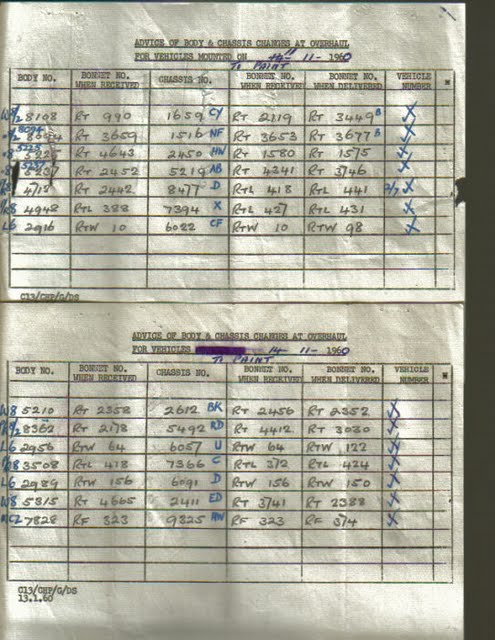 ADVICE OF BODY & CHASSIS CHANGES AT OVERHAUL
FOR VEHICLES MOUNTED ON 14" - 11 - 1960
To PAINT
BODY NO. BONNET NO. WHEN RECEIVED CHASSIS NO. BONNET NO. WHEN RECEIVED BONNET NO. WHEN DELIVERED VEHICLE NUMBER
8108 RT 990 1659 CY RT 2119 RT 3449 B
8094 RT 3659 1516 NF RT 3653 RT 3677 B
5225 RT 4643 2450 HN RT 1580 RT 1575
5237
8237 RT 2452 5219 AB RT 4241 RT 3746
4712 RT 2442 8477 D RTL 418 RTL 441
4948 RTL 388 7394 X RTL 427 RTL 431
L6 2916 RTW 10 6022 CF RTW 10 RTW 98
C13/CHP/G/DS
ADVICE OF BODY & CHASSIS CHANGES AT OVERHAUL
FOR VEHICLES 14 - 11 - 1960
To PAINT
BODY NO. BONNET NO. WHEN RECEIVED CHASSIS NO. BONNET NO. WHEN RECEIVED BONNET NO. WHEN DELIVERED VEHICLE NUMBER
W8 5210 RT 2358 2612 BK RT 2456 RT 2352
8362 RT 2178 5492 RD RT 4412 RT 3030
L6 2956 RTW 64 6057 U RTW 64 RTW 122
3508 RTL 418 7366 C RTL 372 RTL 424
L6 2989 RTW 156 6091 D RTW 156 RTW 150
W8 5315 RT 4665 2411 ED RT 3741 RT 2388
7828 RF 323 9825 RW RF 323 RF 374
C13/CHP/G/DS
13.1.60